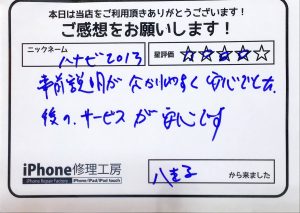 本日は当店をご利用頂きありがとうございます！
ご感想をお願いします！
ニックネーム
ハナビ2013
星評価 ☆☆☆☆☆
事前説明が分かりやすく安心でした。
後の、サービスが安心です
iPhone修理工房
iPhone Repair Factory iPhone/iPad/iPod touch
八王子 から来ました